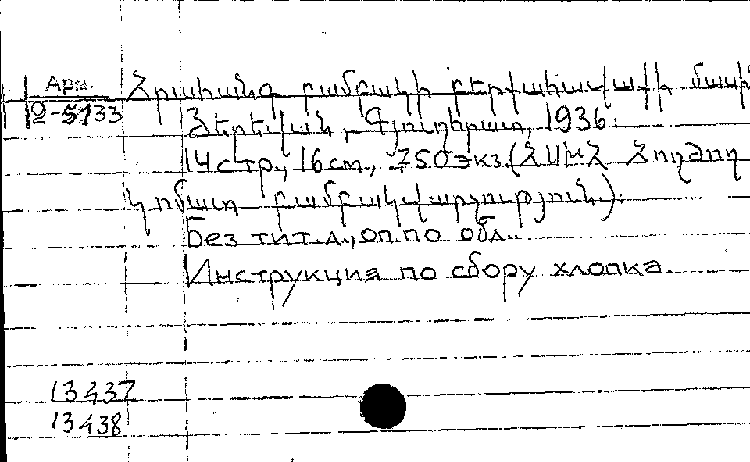 Арм. Հրահանգ բամբակի բերքահավաքի մասին
2-5733
Յերեվան, Գյուղհրատ, 1936.
14 стр., 16 см., 750 экз. (ՀՍԽՀ Հողժող
կոմատ բամբակվարչություն).
Без тит. л., оп. по обл.
Инструкция по сбору хлопка.
13437
13438